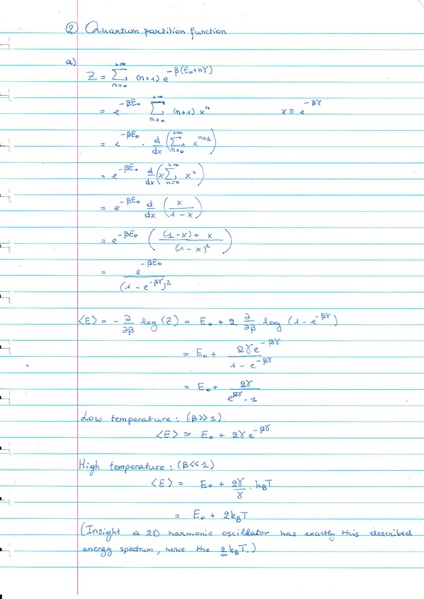 ② Quantum partition function
a) Z = ∑_{n=0}^{+∞} (n+1) e^{-β(E₀+nγ)}
= e^{-βE₀} ∑_{n=0}^{+∞} (n+1) xⁿ    x ≡ e^{-βγ}
= e^{-βE₀} · d/dx (∑_{n=0}^{+∞} x^{n+1})
= e^{-βE₀} d/dx (x ∑_{n=0}^{+∞} xⁿ)
= e^{-βE₀} d/dx (x / (1-x))
= e^{-βE₀} ( ((1-x)+x) / (1-x)² )
= e^{-βE₀} / (1-e^{-βγ})²
⟨E⟩ = - ∂/∂β log(Z) = E₀ + 2 ∂/∂β log (1-e^{-βγ})
= E₀ + 2γe^{-βγ} / (1-e^{-βγ})
= E₀ + 2γ / (e^{βγ}-1)
Low temperature: (β≫1)
⟨E⟩ ≃ E₀ + 2γe^{-βγ}
High temperature: (β≪1)
⟨E⟩ = E₀ + 2γ/γ · k_BT
= E₀ + 2k_BT
(Insight a 2D harmonic oscillator has exactly this described
energy spectrum, hence the 2k_BT.)